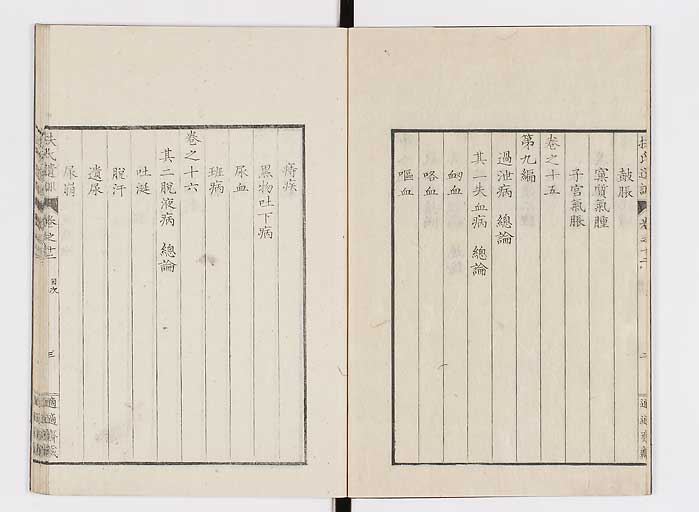 鼓脹
窠質氣腫
子宮氣脹
卷之十五
第九編
過泄病 總論
其一失血病 總論
衂血
咯血
嘔血
痔疾
黒物吐下病
尿血
班病
卷之十六
其二脫液病 總論
吐涎
脫汗
遺尿
尿崩
扶氏遺訓 卷之十二 目次 三 適適齋藏